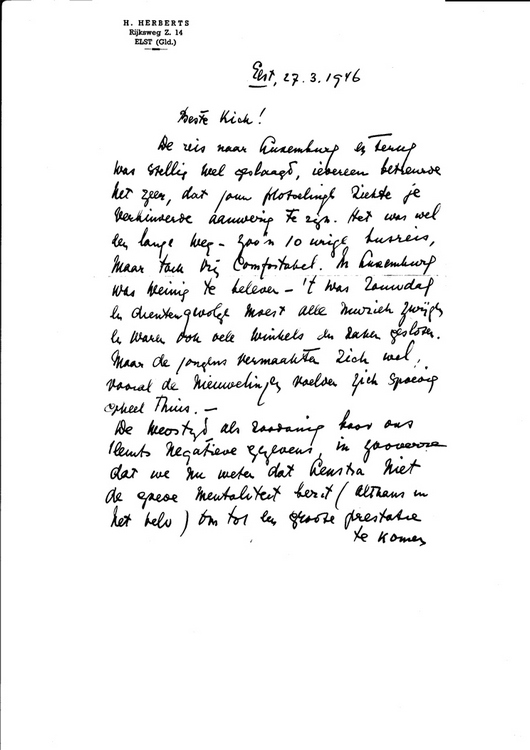 H. HERBERTS
Rijksweg Z. 14
ELST (Gld.)
Elst, 27.3.1946
Beste Kick!
De reis naar Luxemburg en terug
was stellig wel geslaagd, iedereen betreurde
het zeer, dat jouw plotselinge ziekte je
verhinderde aanwezig te zijn. Het was wel
een lange weg - zoo'n 10 urige busreis,
maar toch vrij comfortabel. In Luxemburg
was weinig te beleven - 't was rouwdag
en dientengevolge moest alle muziek zwijgen
en waren ook vele winkels en zaken gesloten.
Maar de jongens vermaakten zich wel,
vooral de nieuwelingen voelden zich spoedig
geheel thuis. -
De wedstrijd als zoodanig voor ons
slechts negatieve gegevens, in zooverre
dat we nu weten dat Lenstra niet
de goede mentaliteit bezit (althans in
het veld) om tot een groote prestatie
te komen